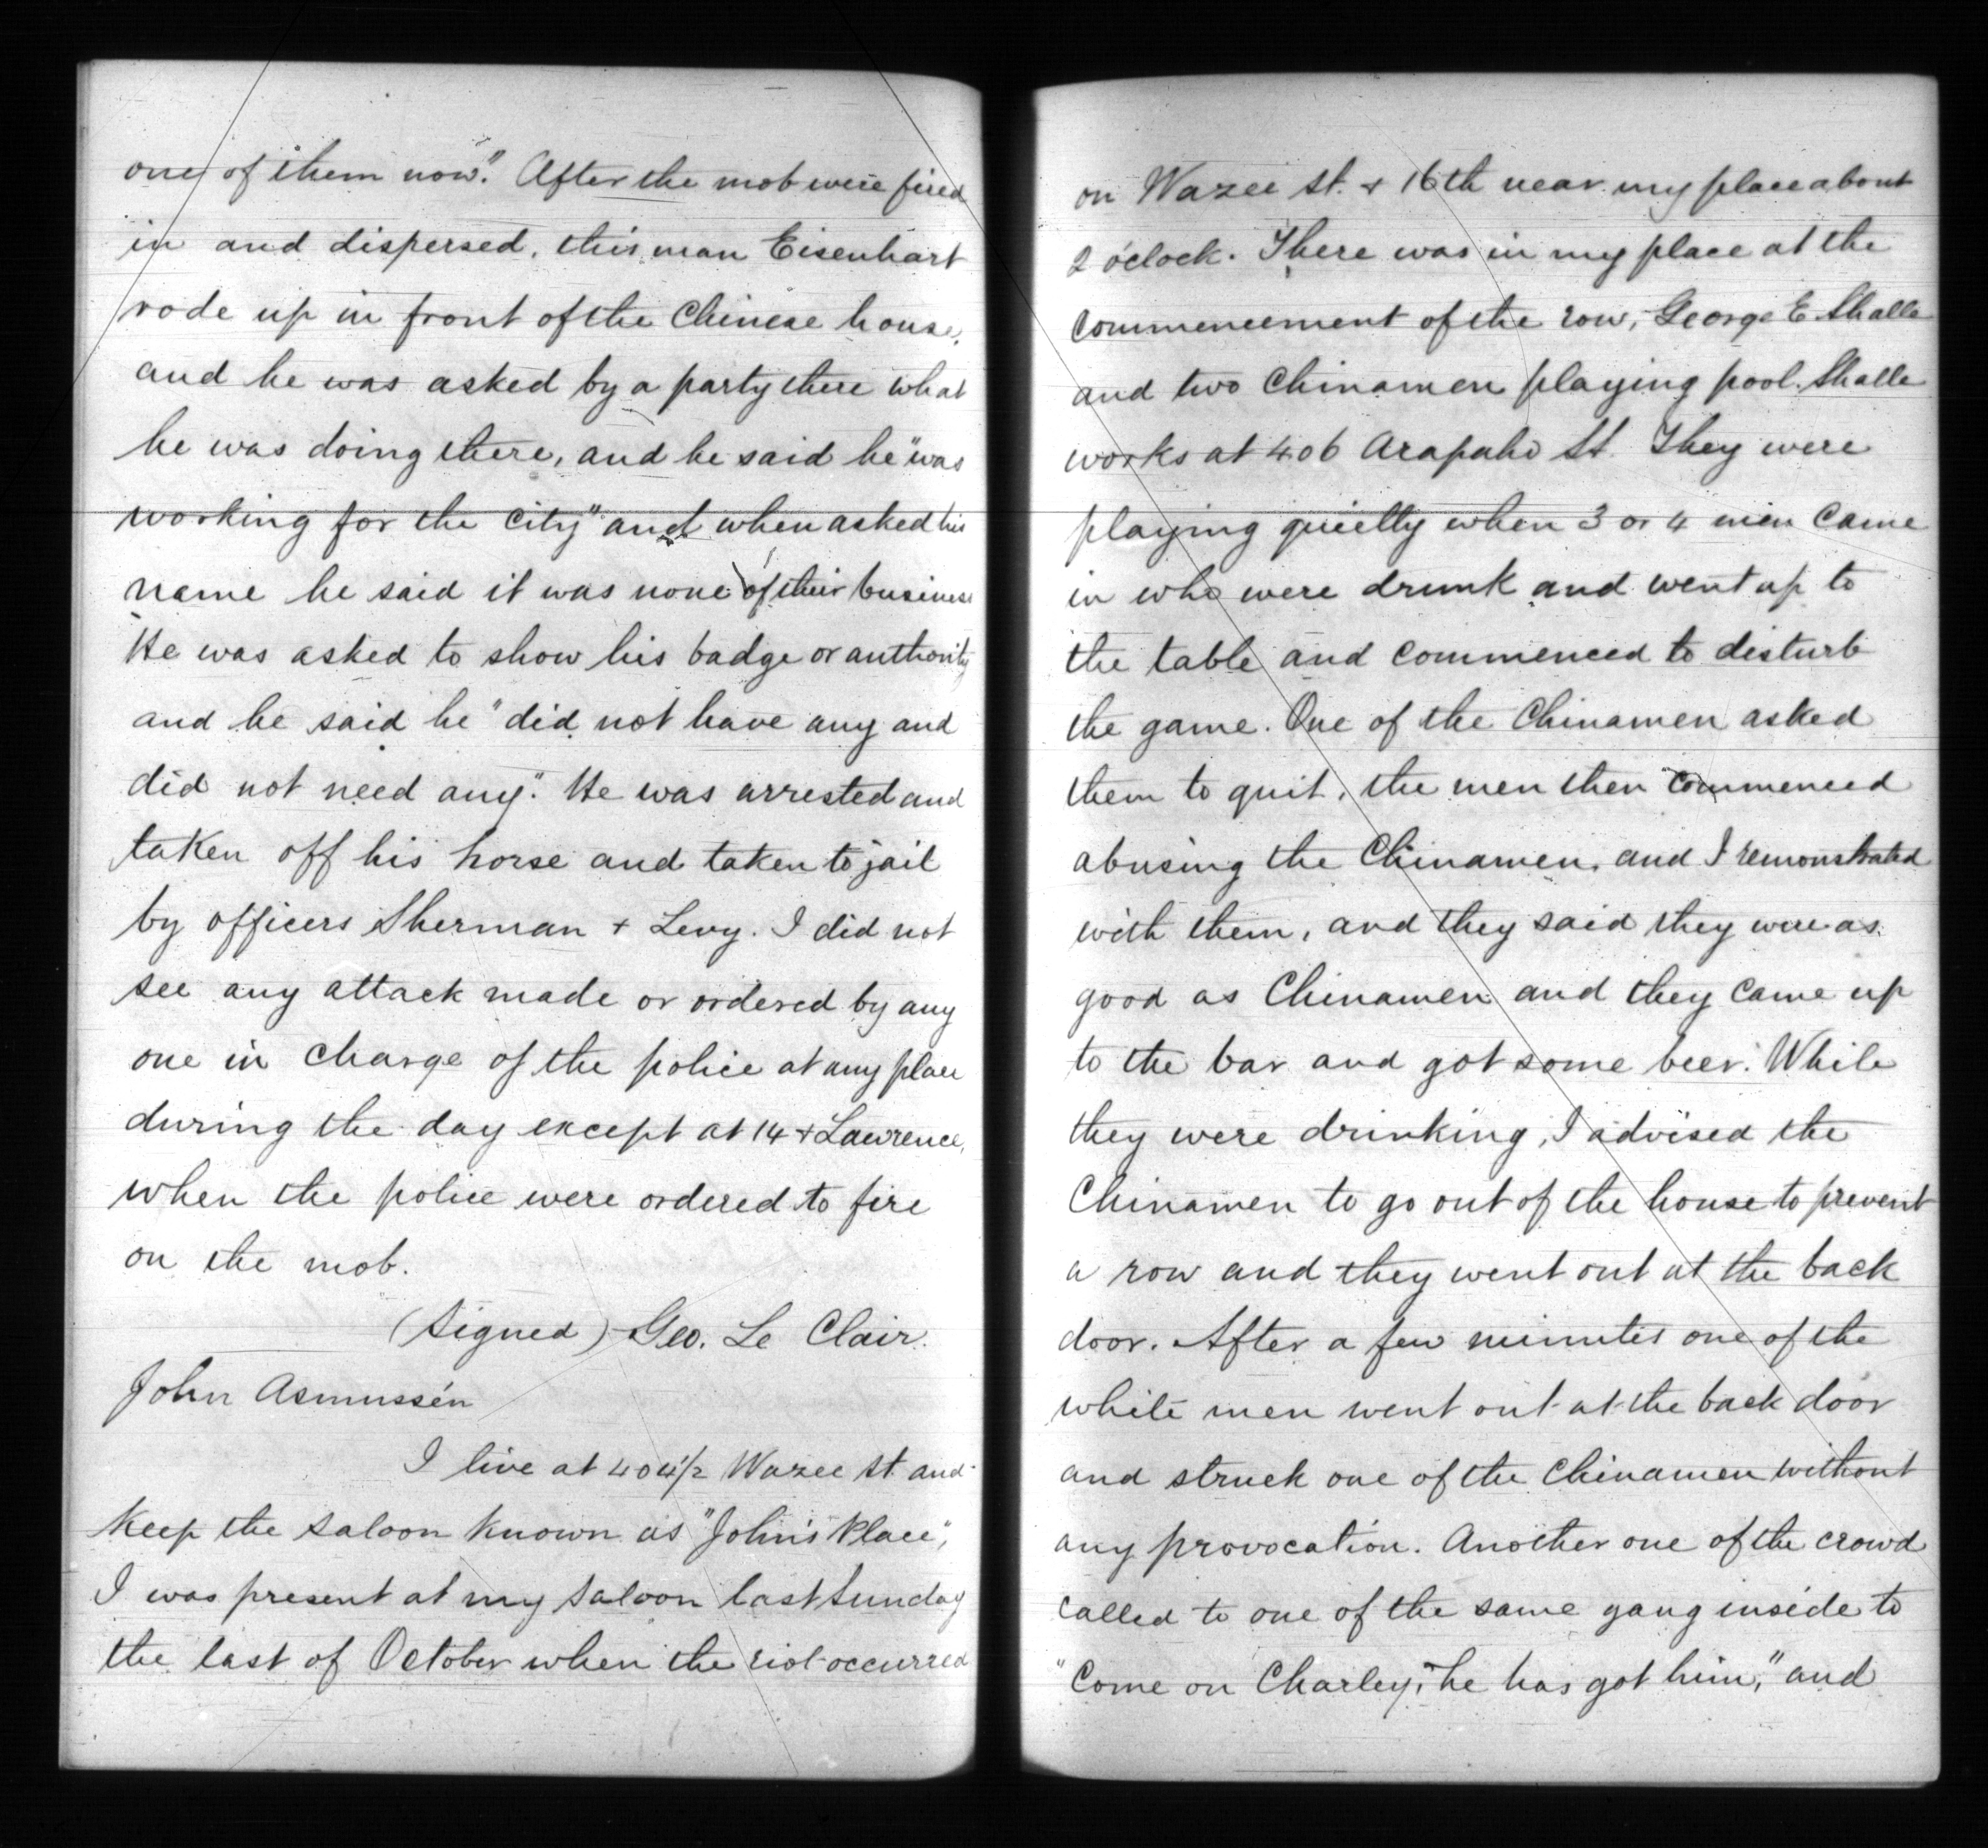 one of them now". After the mob were fired
in and dispersed, this man Eisenhart
rode up in front of the Chinese house,
and he was asked by a party there what
he was doing there, and he said he "was
working for the city" and when asked his
name he said it was none of their business
He was asked to show his badge or authority
and he said he "did not have any and
did not need any". He was arrested and
taken off his horse and taken to jail
by officers Sherman + Levy. I did not
see any attack made or ordered by any
one in charge of the police at any place
during the day except at 14 + Lawrence,
when the police were ordered to fire
on the mob.
(Signed) Geo. Le Clair.
John Asmussen
I live at 404 1/2 Wazee St. and
keep the saloon known as "John's Place",
I was present at my saloon last Sunday
the last of October when the riot occurred
on Wazee St. + 16th near my place about
2 o'clock. There was in my place at the
commencement of the row, George E Shalle
and two Chinamen playing pool. Shalle
works at 406 Arapaho St. They were
playing quietly when 3 or 4 men came
in who were drunk and went up to
the table and commenced to disturb
the game. One of the Chinamen asked
them to quit, the men then commenced
abusing the Chinamen, and I remonstrated
with them, and they said they were as
good as Chinamen and they came up
to the bar and got some beer. While
they were drinking, I advised the
Chinamen to go out of the house to prevent
a row and they went out at the back
door. After a few minutes one of the
white men went out at the back door
and struck one of the Chinamen without
any provocation. Another one of the crowd
called to one of the same gang inside to
"Come on Charley, he has got him," and